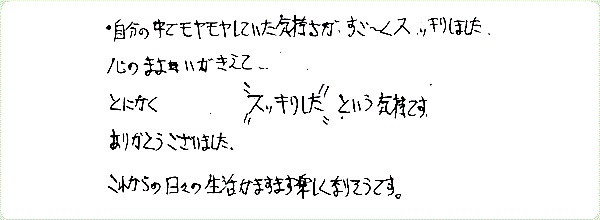 ・自分の中でモヤモヤしていた気持ちが、すご〜くスッキリしました。
心のまよいがきえて…
とにかく "スッキリした" という気持です。
ありがとうございました。
これからの日々の生活がますます楽しくなりそうです。